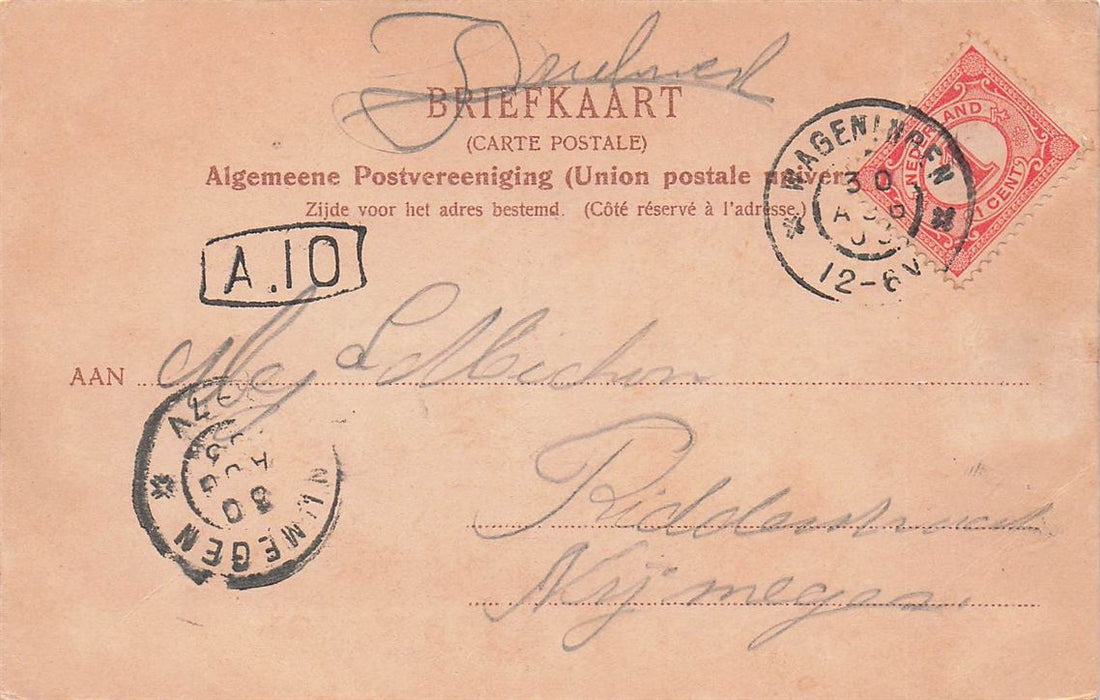 Drukwerk
BRIEFKAART
(CARTE POSTALE)
Algemeene Postvereeniging (Union postale univer
Zijde voor het adres bestemd. (Côté réservé à l'adresse.)
WAGENINGEN
30
AUG
12-6V
NEDERLAND
1
1 CENT
A.10
AAN Mej L Michon
Ridderstraat
Nijmegen.
NIJMEGEN
30
AUG